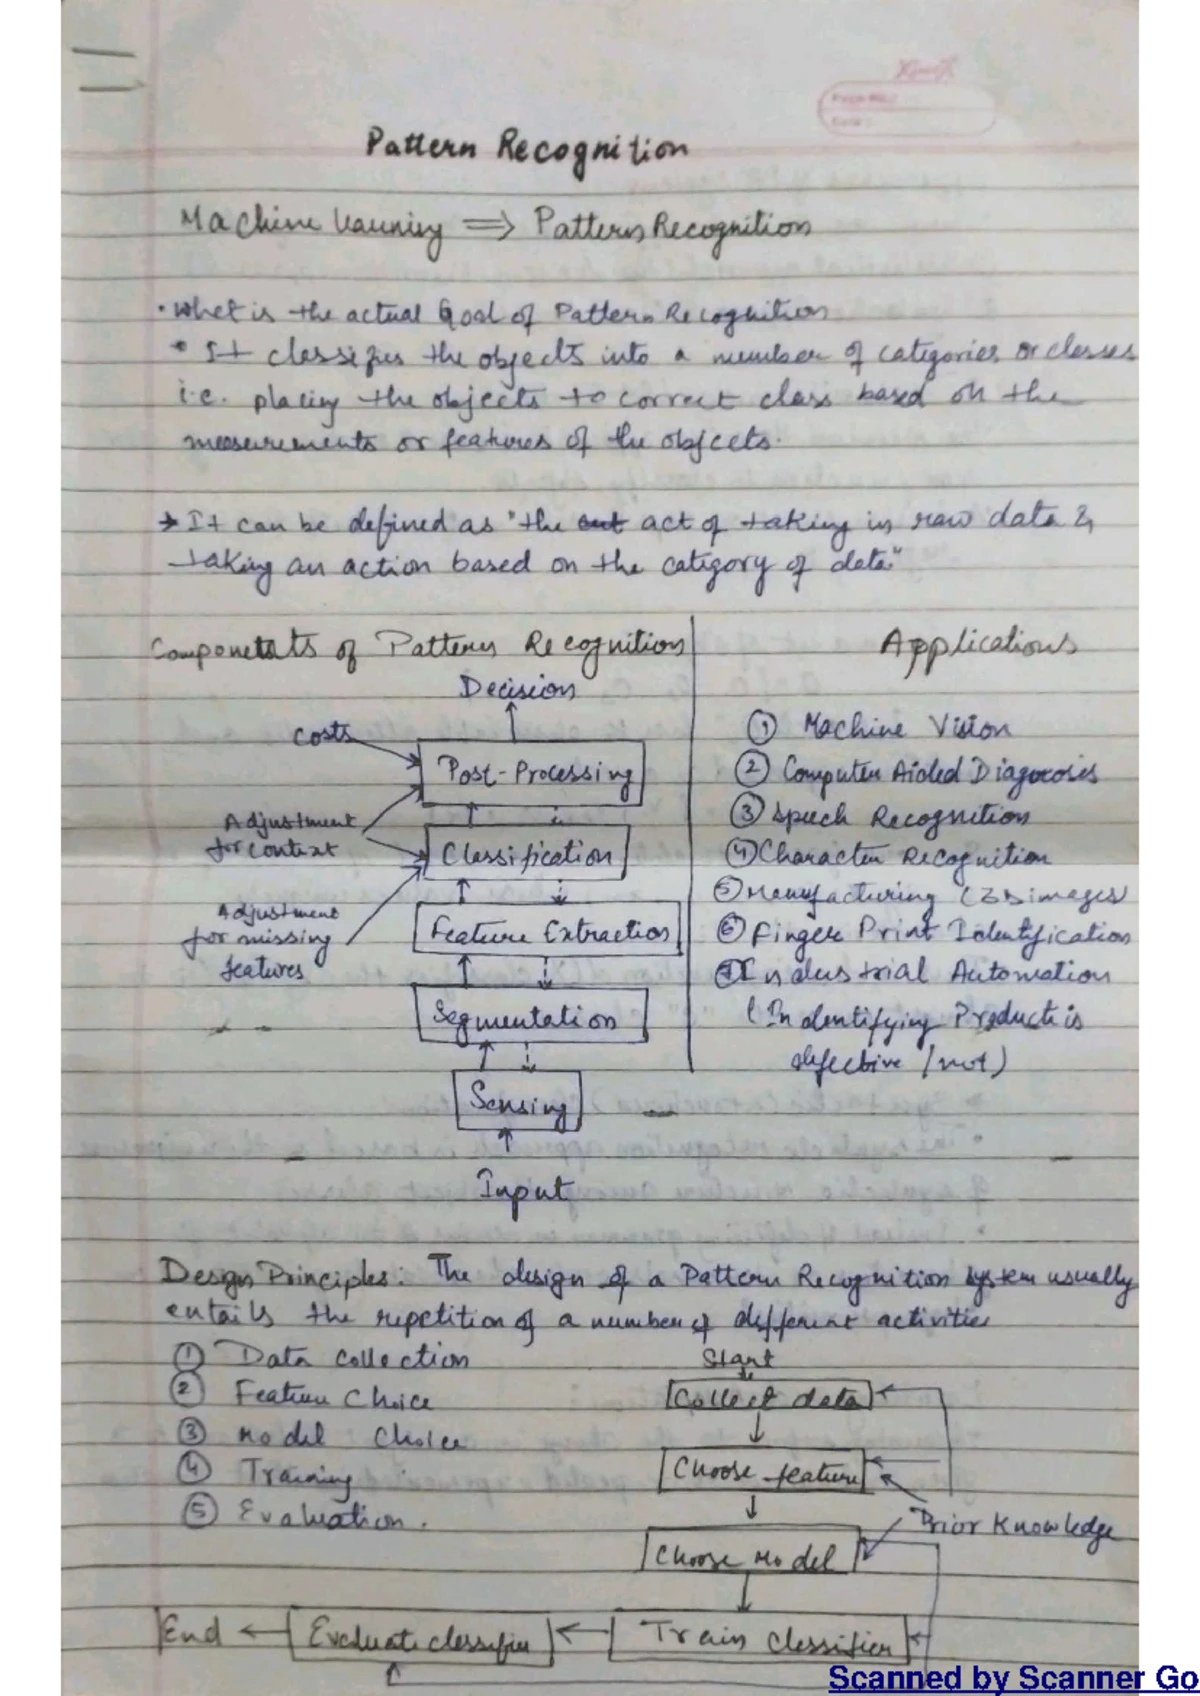 Pattern Recognition
Machine Learning ⇒ Pattern Recognition
• What is the actual Goal of Pattern Recognition
• It classifies the objects into a number of categories or classes
i.e. placing the objects to correct class based on the
measurements or features of the objects.
→ It can be defined as "the out act of taking in raw data &
taking an action based on the category of data"
Components of Pattern Recognition
Decision
Costs
Post-Processing
Adjustment
for context
Classification
Adjustment
for missing
features
Feature Extraction
Segmentation
Sensing
Input
Applications
① Machine Vision
② Computer Aided Diagnosis
③ Speech Recognition
④ Character Recognition
⑤ Manufacturing (3D images)
⑥ Finger Print Identification
⑦ Industrial Automation
(In identifying Product is
defective / not)
Design Principles: The design of a Pattern Recognition system usually
entails the repetition of a number of different activities
① Data Collection
② Feature Choice
③ Model Choice
④ Training
⑤ Evaluation.
Start
Collect data
Choose feature
Prior Knowledge
Choose Model
Train classifier
Evaluate classifier
End
Scanned by Scanner Go